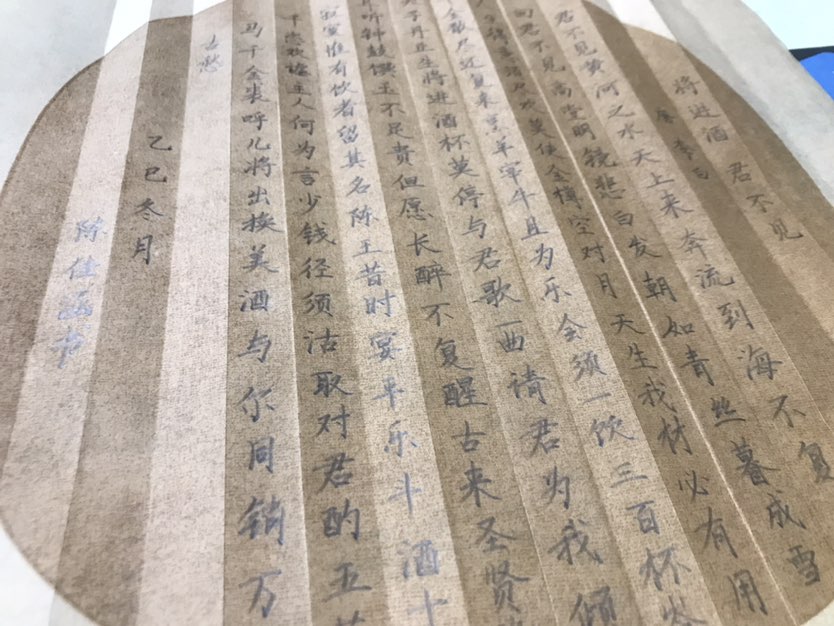 将进酒 君不见
唐 李白
君不见黄河之水天上来奔流到海不复
回君不见高堂明镜悲白发朝如青丝暮成雪
人生得意须尽欢莫使金樽空对月天生我材必有用
金散尽还复来烹羊宰牛且为乐会须一饮三百杯岑
夫子丹丘生将进酒杯莫停与君歌一曲请君为我倾
耳听钟鼓馔玉不足贵但愿长醉不复醒古来圣贤
寂寞惟有饮者留其名陈王昔时宴平乐斗酒十
千恣欢谑主人何为言少钱径须沽取对君酌五花
马千金裘呼儿将出换美酒与尔同销万
古愁
乙巳冬月
陈佳 书